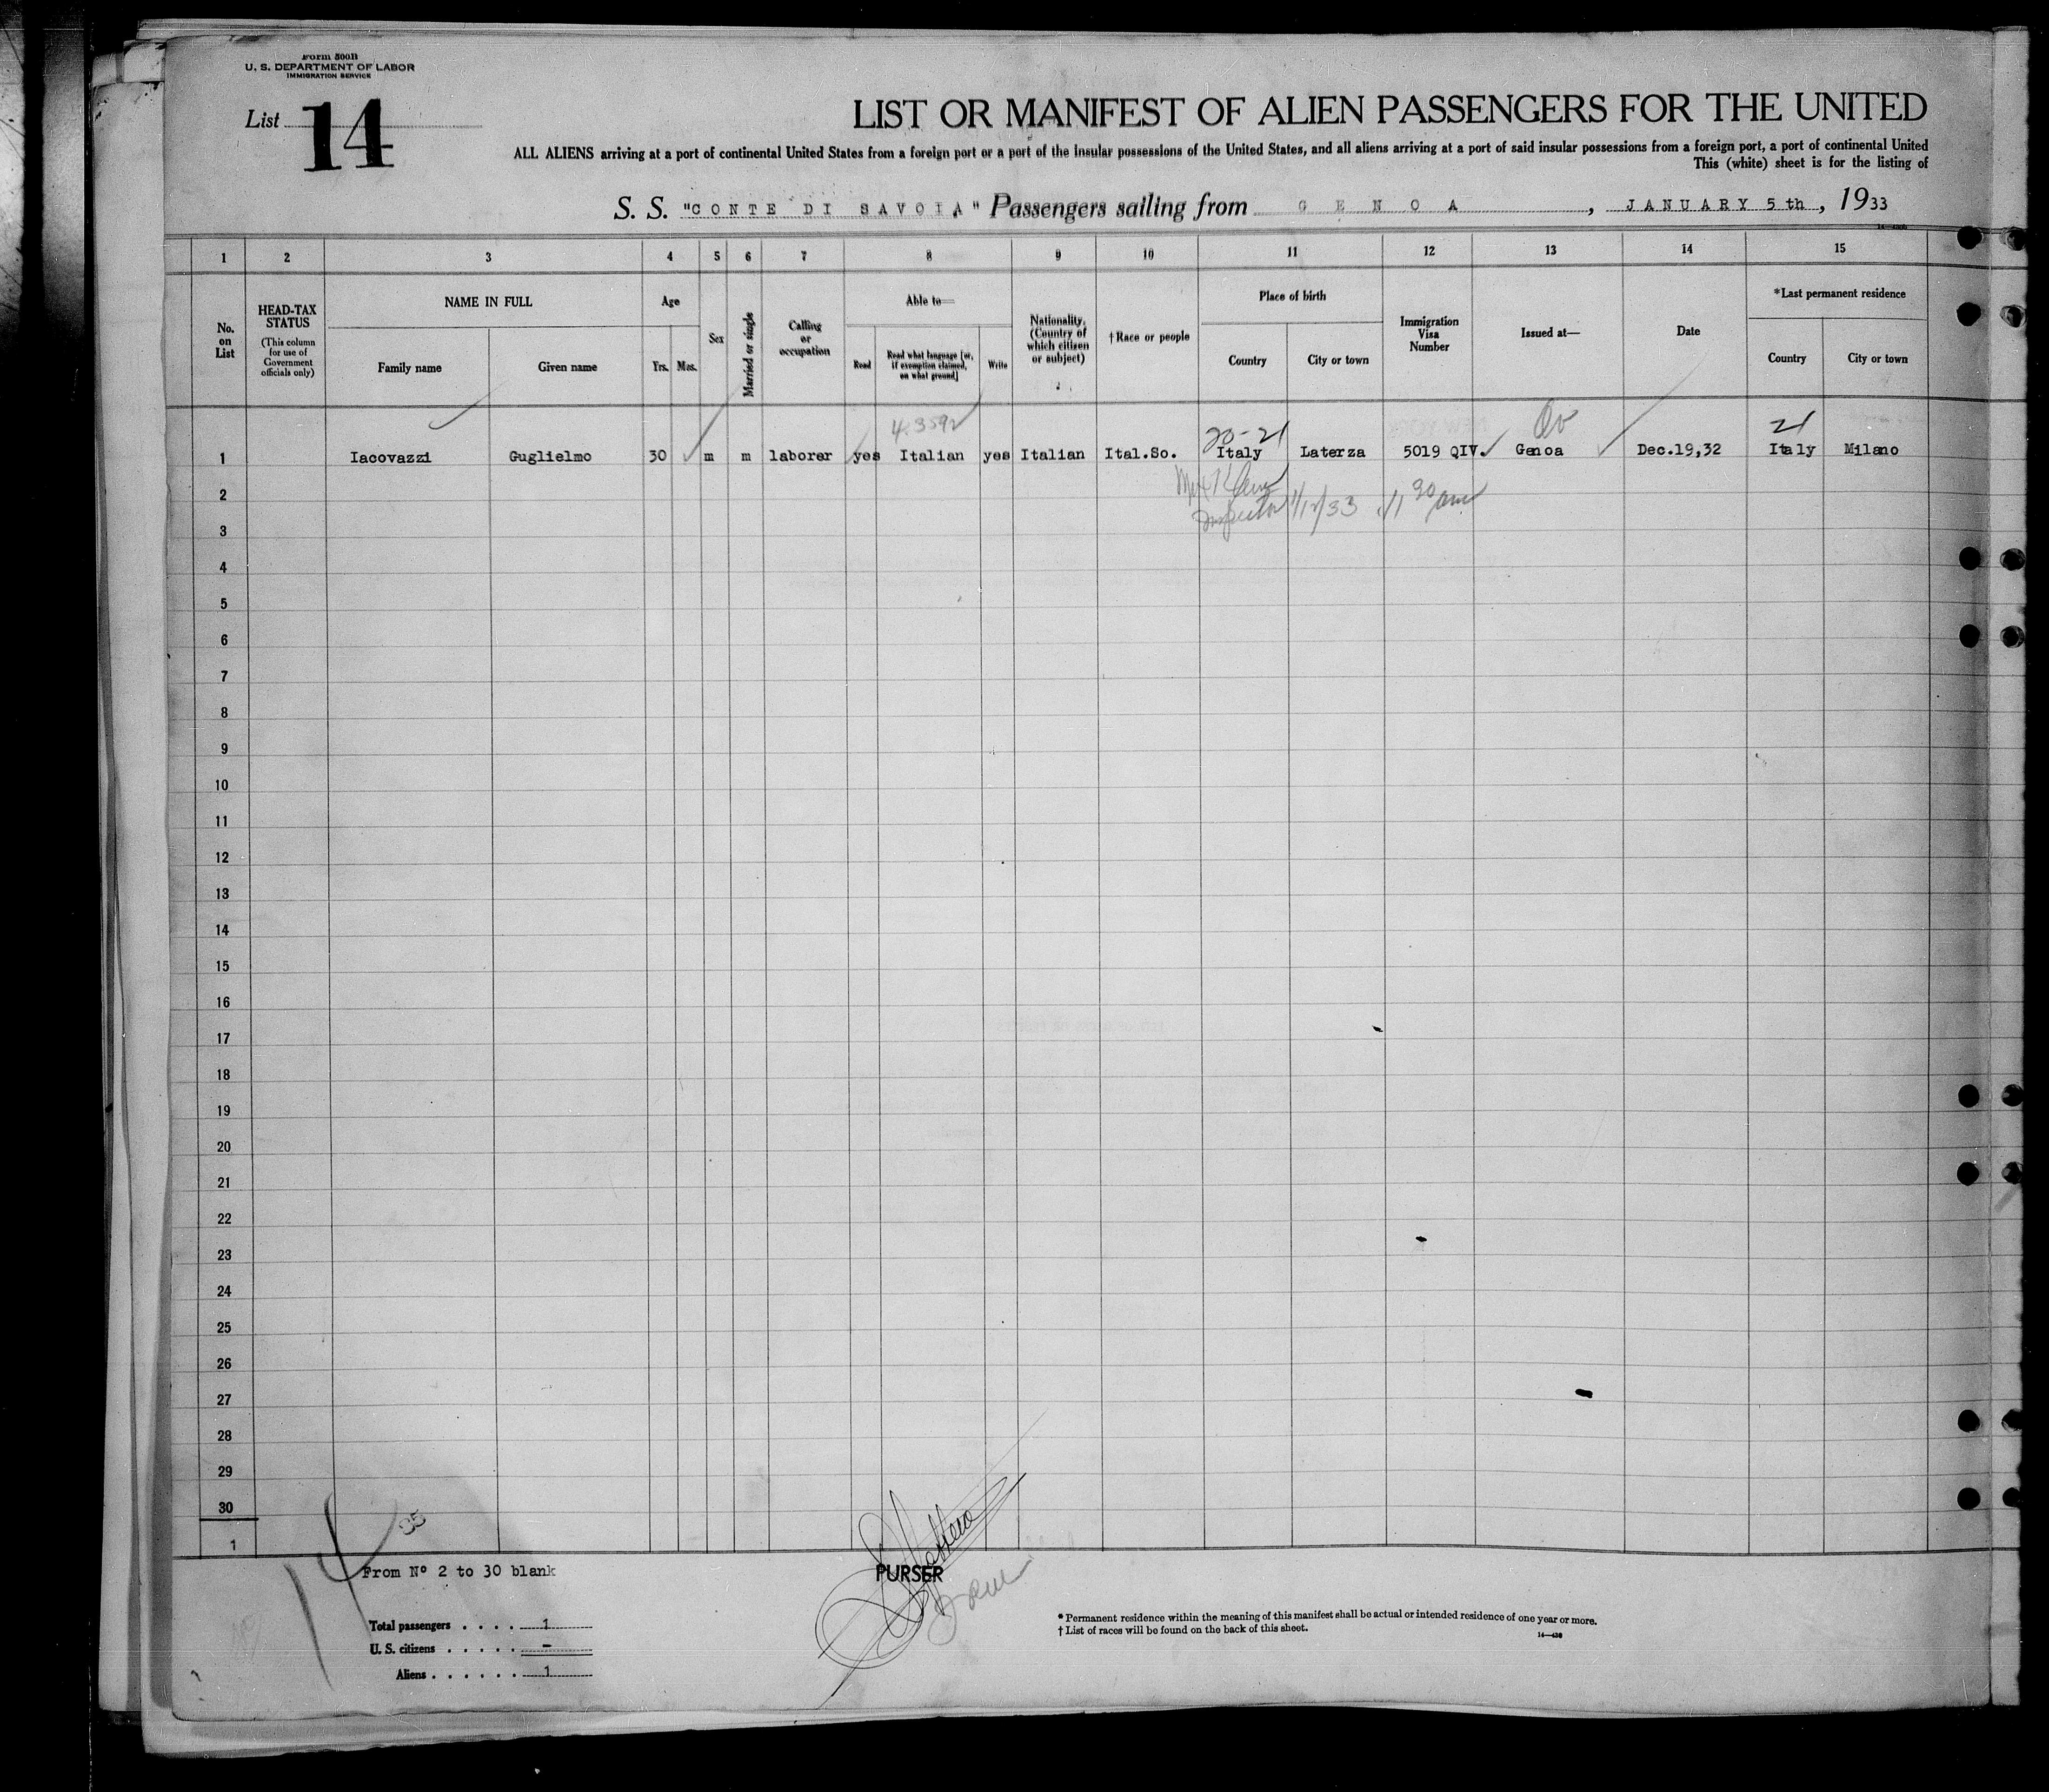 Form 500B
U. S. DEPARTMENT OF LABOR
IMMIGRATION SERVICE
List 14
LIST OR MANIFEST OF ALIEN PASSENGERS FOR THE UNITED
ALL ALIENS arriving at a port of continental United States from a foreign port or a port of the insular possessions of the United States, and all aliens arriving at a port of said insular possessions from a foreign port, a port of continental United
This (white) sheet is for the listing of
S. S. "CONTE DI SAVOIA" Passengers sailing from GENOA, JANUARY 5th, 1933
1 2 3 4 5 6 7 8 9 10 11 12 13 14 15
No. on List
HEAD-TAX STATUS
(This column for use of Government officials only)
NAME IN FULL
Family name
Given name
Age
Yrs.
Mos.
Sex
Married or single
Calling or occupation
Able to—
Read
Read what language [or, if exemption claimed, on what ground]
Write
Nationality. (Country of which citizen or subject)
†Race or people
Place of birth
Country
City or town
Immigration Visa Number
Issued at—
Date
*Last permanent residence
Country
City or town
20-21
21
1 Iacovazzi Guglielmo 30 m m laborer yes Italian yes Italian Ital.So. Italy Laterza 5019 QIV. Genoa Dec.19,32 Italy Milano
2
Inspector 1/12/33 11 30 am
3
4
5
6
7
8
9
10
11
12
13
14
15
16
17
18
19
20
21
22
23
24
25
26
27
28
29
30
1
14
35
From Nº 2 to 30 blank
PURSER
Total passengers . . . . 1
U. S. citizens . . . . . -
Aliens . . . . . . 1
* Permanent residence within the meaning of this manifest shall be actual or intended residence of one year or more.
† List of races will be found on the back of this sheet.